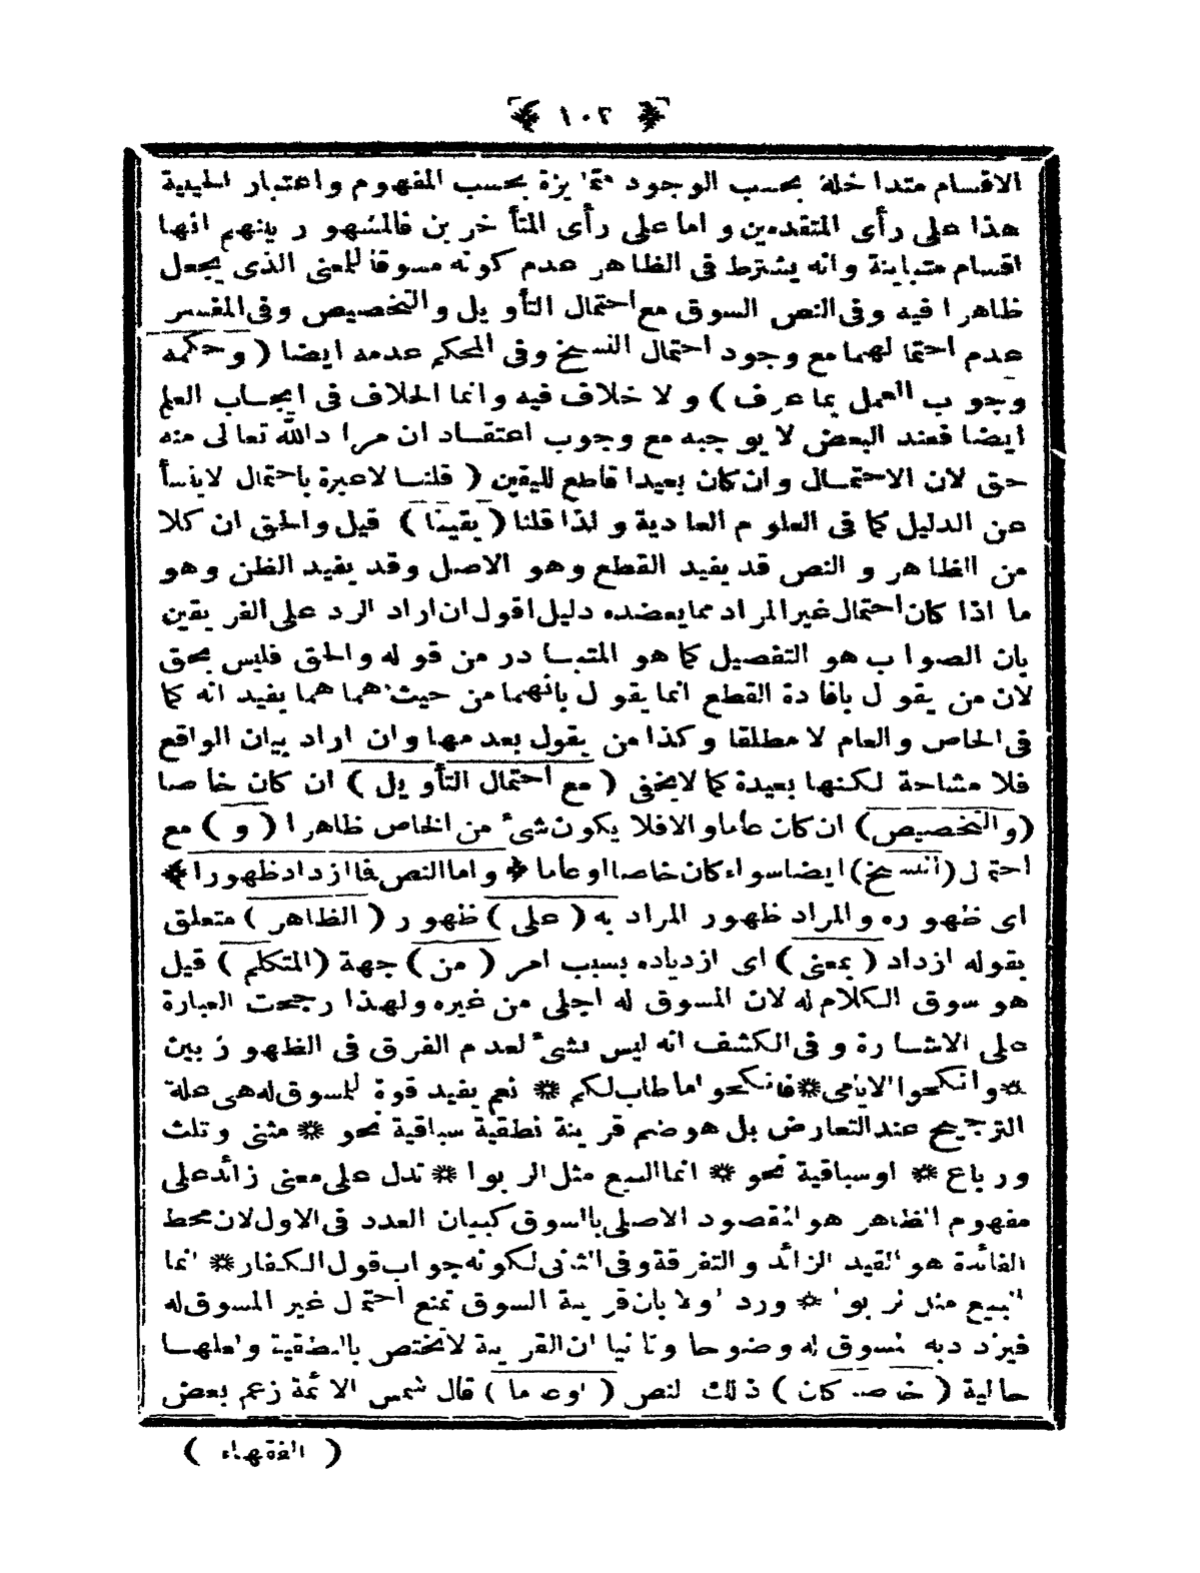 ﴿ ١٠٢ ﴾
الاقسام متداخلة بحسب الوجود متمايزة بحسب المفهوم واعتبار الحيثية
هذا على رأى المتقدمين واما على رأى المتأخرين فالمشهور بينهم انها
اقسام متباينة وانه يشترط فى الظاهر عدم كونه مسوقا للمعنى الذى يجعل
ظاهرا فيه وفى النص السوق مع احتمال التأويل والتخصيص وفى المفسر
عدم احتمالهما مع وجود احتمال النسخ وفى المحكم عدمه ايضا ( وحكمه
وجوب العمل بما عرف ) ولا خلاف فيه وانما الخلاف فى ايجاب العلم
ايضا فعند البعض لا يوجبه مع وجوب اعتقاد ان مراد الله تعالى منه
حق لان الاحتمال وان كان بعيدا قاطع لليقين ( قلنا لاعبرة باحتمال لاينشأ
عن الدليل كما فى العلوم العادية ولذا قلنا ( يقينا ) قيل والحق ان كلا
من الظاهر والنص قد يفيد القطع وهو الاصل وقد يفيد الظن وهو
ما اذا كان احتمال غير المراد مما يعضده دليل اقول ان اراد الرد على الفريقين
بان الصواب هو التفصيل كما هو المتبادر من قوله والحق فليس بحق
لان من يقول بافادة القطع انما يقول بانهما من حيث هما هما يفيد انه كما
فى الخاص والعام لا مطلقا وكذا من يقول بعدمها وان اراد بيان الواقع
فلا مشاحة لكنها بعيدة كما لايخفى ( مع احتمال التأويل ) ان كان خاصا
( والتخصيص ) ان كان عاما والا فلا يكون شئ من الخاص ظاهرا ( و ) مع
احتمال ( النسخ ) ايضا سواء كان خاصا او عاما ﴿ واما النص فما ازداد ظهورا ﴾
اى ظهوره والمراد ظهور المراد به ( على ) ظهور ( الظاهر ) متعلق
بقوله ازداد ( بمعنى ) اى ازدياده بسبب امر ( من ) جهة ( المتكلم ) قيل
هو سوق الكلام له لان المسوق له اجلى من غيره ولهذا رجحت العبارة
على الاشارة وفى الكشف انه ليس بشئ لعدم الفرق فى الظهور بين
❊ وانكحوا الايامى ❊ فانكحوا ما طاب لكم ❊ نعم يفيد قوة للمسوق له هى علة
الترجيح عند التعارض بل هو ضم قرينة نطقية سباقية نحو ❊ مثنى وثلث
ورباع ❊ او سياقية نحو ❊ انما البيع مثل الربوا ❊ تدل على معنى زائد على
مفهوم الظاهر هو المقصود الاصلى بالسوق كبيان العدد فى الاول لان محط
الفائدة هو القيد الزائد والتفرقة وفى الثانى لكونه جواب قول الكفار ❊ انما
البيع مثل الربوا ❊ ورد اولا بان قرينة السوق تمنع احتمال غير المسوق له
فيزداد به المسوق له وضوحا وثانيا ان القرينة لا تختص بالنطقية ولعلها
حالية ( خاصا كان ) ذلك النص ( او عاما ) قال شمس الائمة زعم بعض
( الفقهاء )